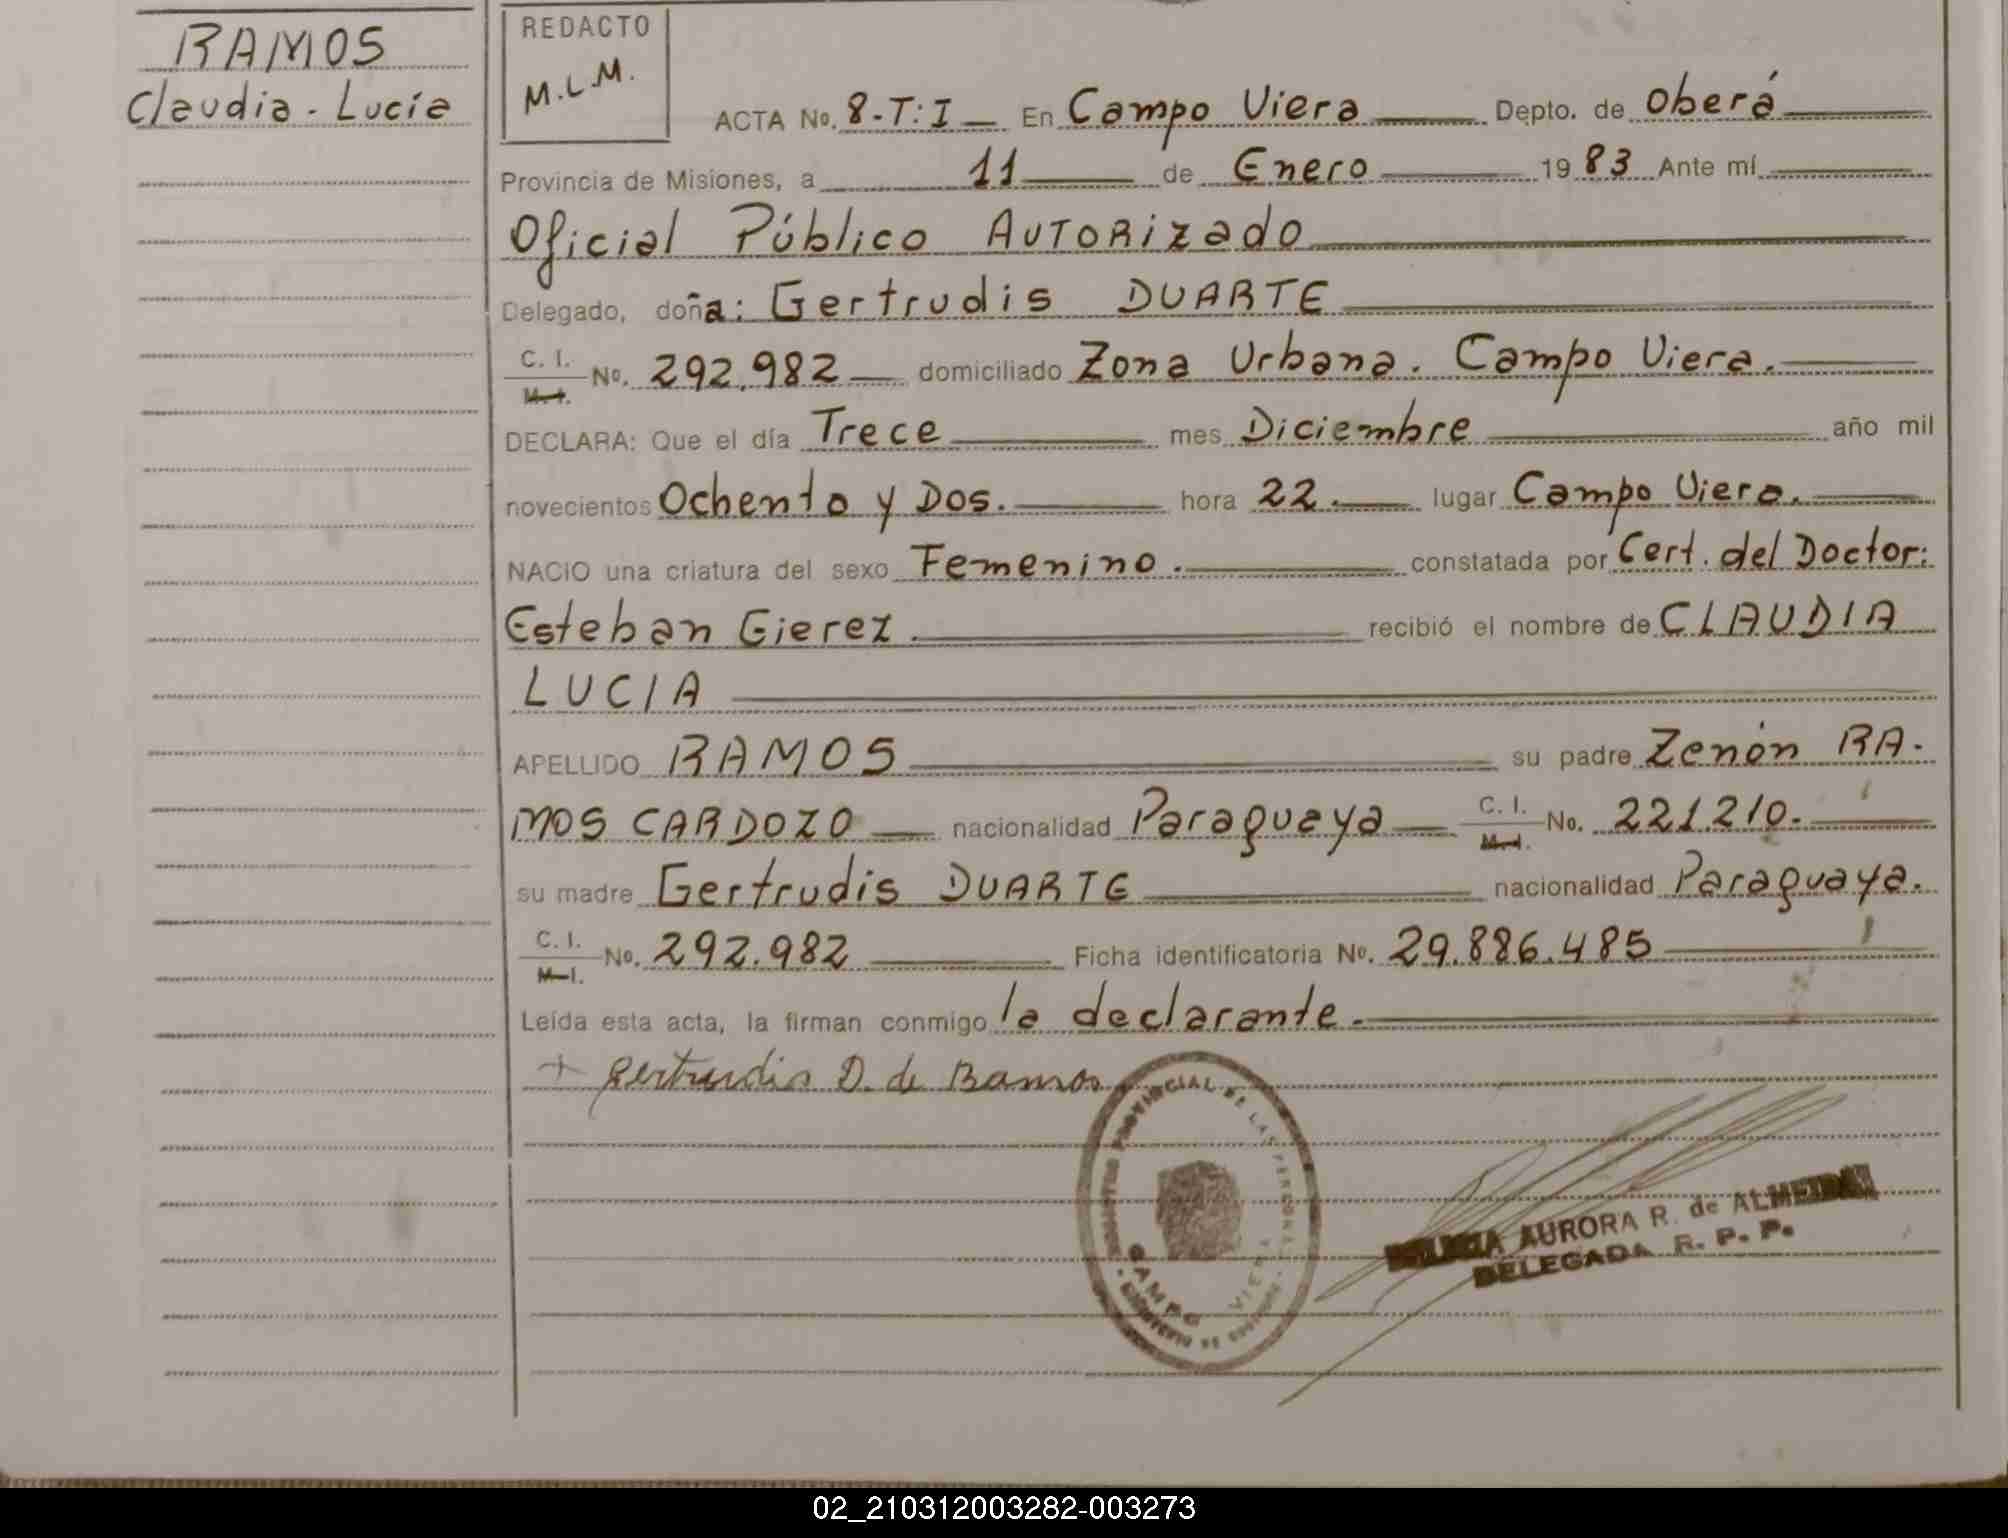 RAMOS
Claudia - Lucía
REDACTO
M.L.M.
ACTA No. 8-T:I En Campo Viera Depto. de Oberá
Provincia de Misiones, a 11 de Enero 1983 Ante mí
Oficial Público AUTORizado
Delegado, doña: Gertrudis DUARTE
C. I. M. I. No. 292.982 domiciliado Zona Urbana. Campo Viera.
DECLARA: Que el día Trece mes Diciembre año mil
novecientos Ochenta y Dos. hora 22. lugar Campo Viera.
NACIO una criatura del sexo Femenino. constatada por Cert. del Doctor:
Esteban Gierez. recibió el nombre de CLAUDIA
LUCIA
APELLIDO RAMOS su padre Zenón RA-
MOS CARDOZO nacionalidad Paraguaya C. I. M. I. No. 221.210.
su madre Gertrudis DUARTE nacionalidad Paraguaya.
C. I. M. I. No. 292.982 Ficha identificatoria No. 29.886.485
Leída esta acta, la firman conmigo la declarante.
+ Gertrudis D. de Ramos
PROVINCIAL DE LAS PERSONAS
CAMPO VIERA
AURORA R. de ALMEIDA
DELEGADA R. P. P.
02_210312003282-003273